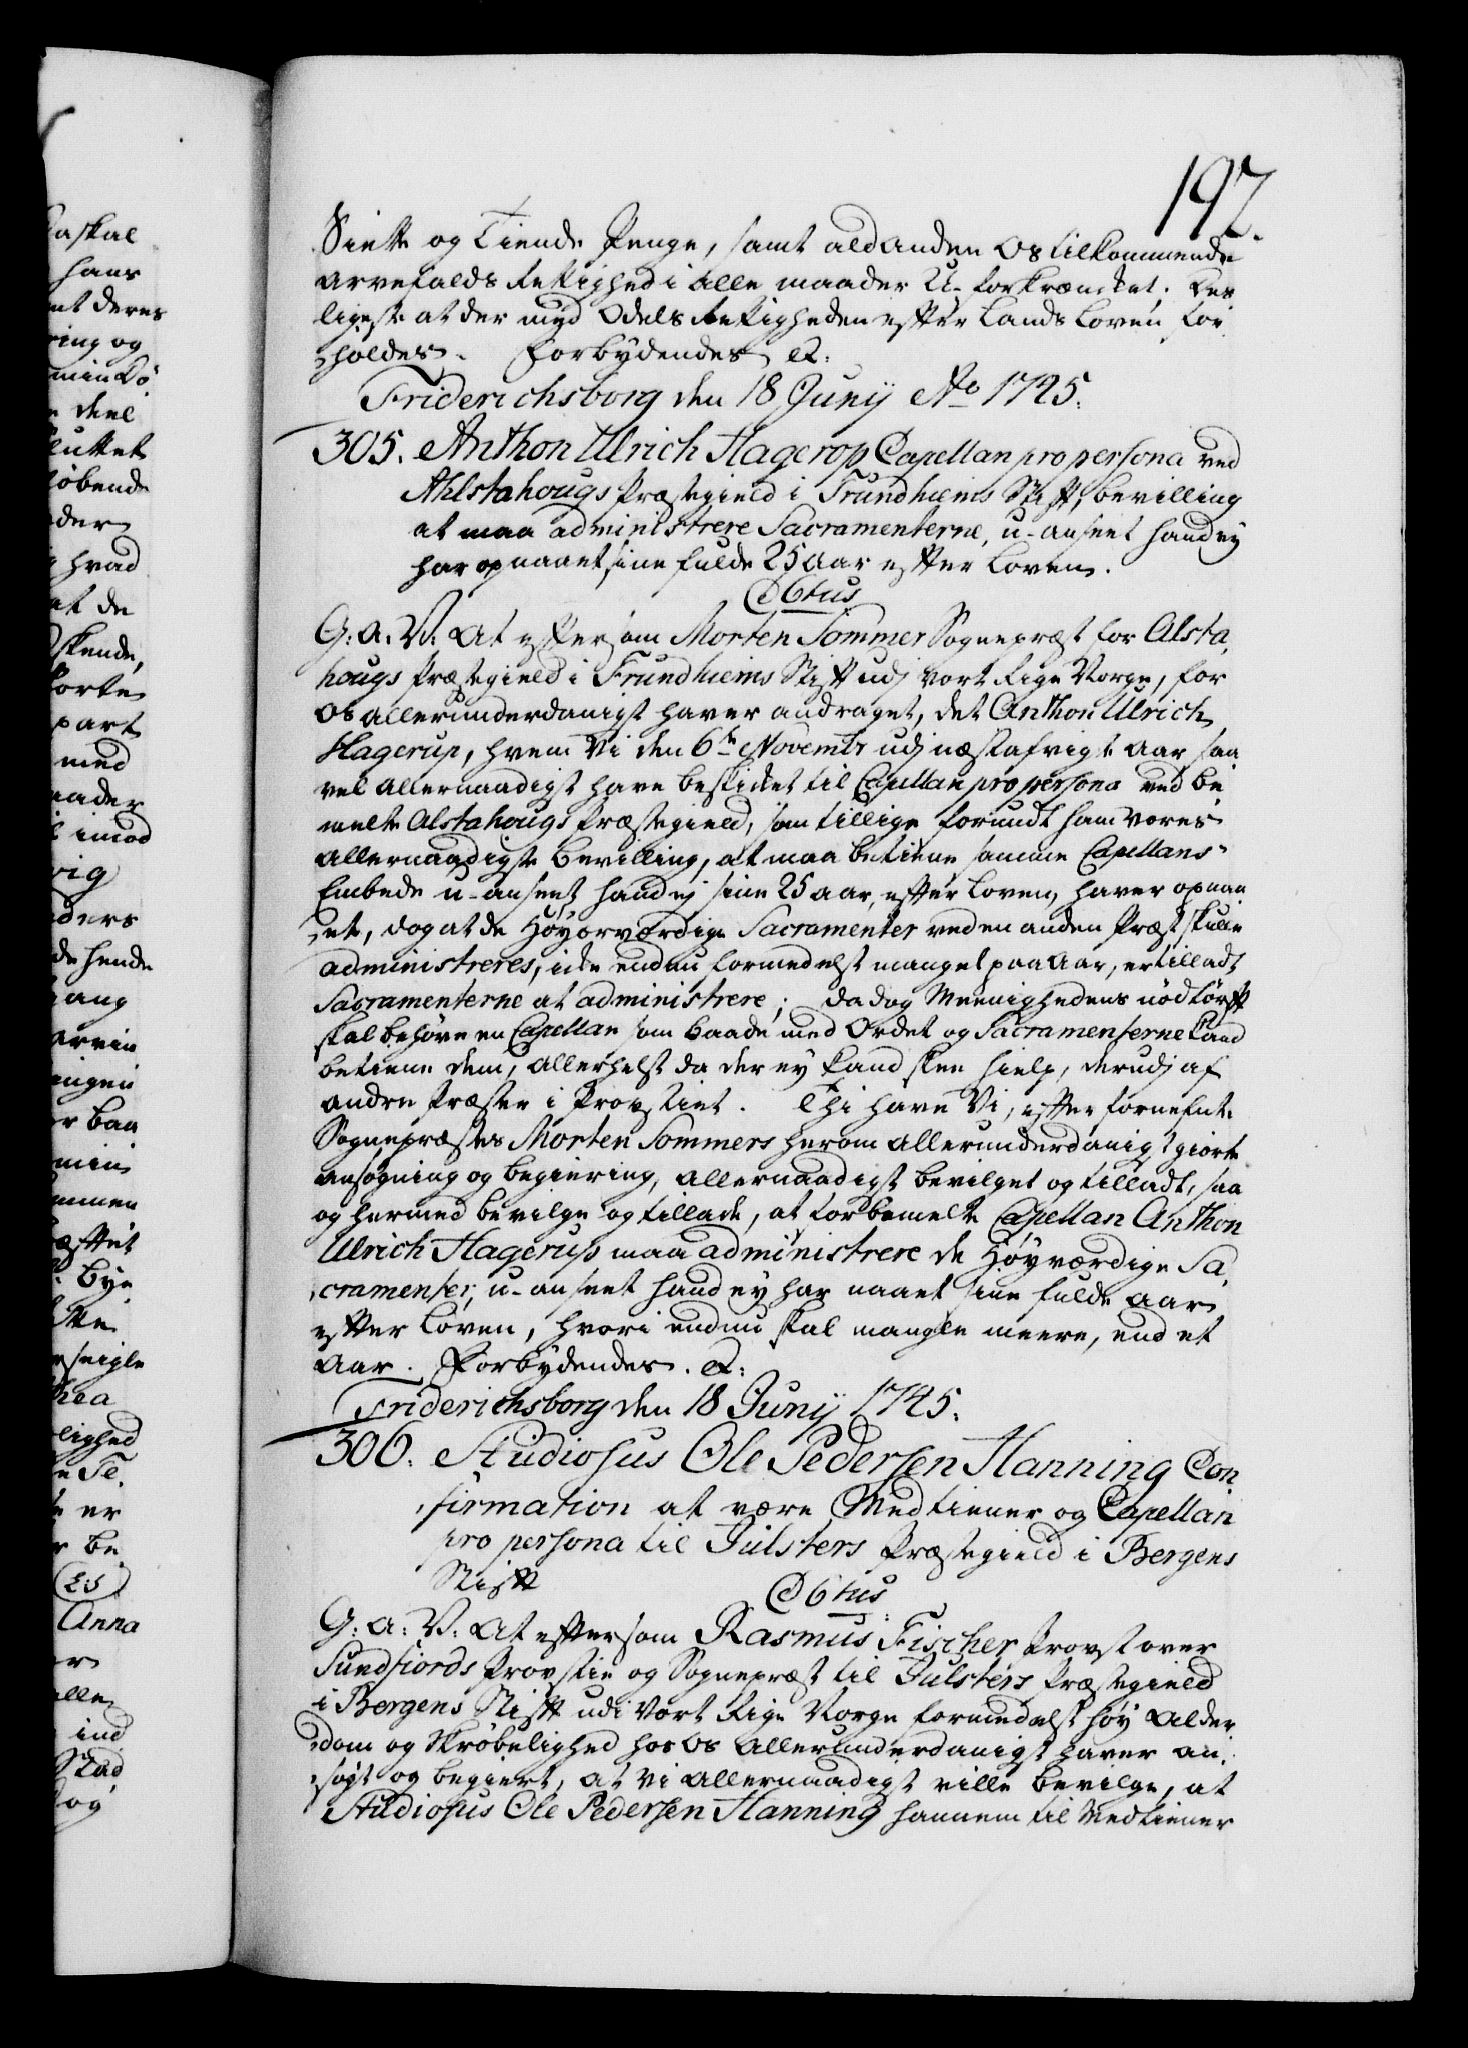 192.
Siette og Tiende Penge, samt ald anden Os tilkommende
Arvefalds Rettighed i alle maader U-forkrænket; Des
ligeste at der med Odels Rettigheden efter Lands Loven for
holdes. Forbydendes etc:
Friderichsborg den 18 Junij Ao 1745.
305. Anthon Ulrich Hagerop Capellan pro persona ved
Ahlstahougs Præstegield i Trundhiems Stift, bevilling
at maa administrere Sacramenterne, u-anseet hand ey
har opnaaet sine fulde 25 Aar efter Loven.
C 6tus
G: A: V: At eftersom Morten Sommer Sognepræst for Alsta,
hougs Præstegield i Trundhiems Stift udj vort Rige Norge, for
Os allerunderdanigst haver andraget, det Anthon Ulrich
Hagerup, hvem Vi den 6te Novembr udj næstafvigte Aar saa
vel allernaadigst have beskicket til Capellan pro persona ved be
melte Alstahougs Præstegield, som tillige forundt ham vores
allernaadigste bevilling, at maa betiene samme Capellans
Embede u-anseet hand ej sine 25 aar, efter Loven, haver opnaa
et, dog at de Høyærværdige Sacramenter ved en anden Præst skulle
administreres, icke endnu formedelst mangel paa Aar, er tilladt
Sacramenterne at administrere; da dog Meenighedens nødtørft
skal behøve en Capellan som baade med Ordet og Sacramenterne kand
betiene dem, allerhelst da der ey kand skee hielp, derudj af
andre Præster i Provstiet. Thi have Vi, efter fornefnte
Sognepræstes Morten Sommers herom allerunderdanigst giorte
ansøgning og begiering, allernaadigst bevilget og tilladt, saa
og hermed bevilge og tillade, at forbemelte Capellan Anthon
Ulrich Hagerup maa administrere de Høyværdige Sa,
cramenter, u-anseet hand ey har naaet sine fulde Aar
efter Loven, hvori endnu skal mangle meere, end et
Aar. Forbydendes. etc:
Friderichsborg den 18 Junij 1745.
306. Studiosus Ole Pedersen Hanning Con
firmation at være Medtiener og Capellan
pro persona til Jülsters Præstegield i Bergens
Stift
C 6tus
G: A: V: At eftersom Rasmus Fischer Provst over
Sundfiords Provstie og Sognepræst til Jülsters Præstegield
i Bergens Stift udi Vort Rige Norge formedelst høy Alder
dom og Skrøbelighed hos Os Allerunderdanigst haver an,
søgt og begiert, at Vi allernaadigst ville bevilge, at
Studiosus Ole Pedersen Hanning hannem til Medtiener